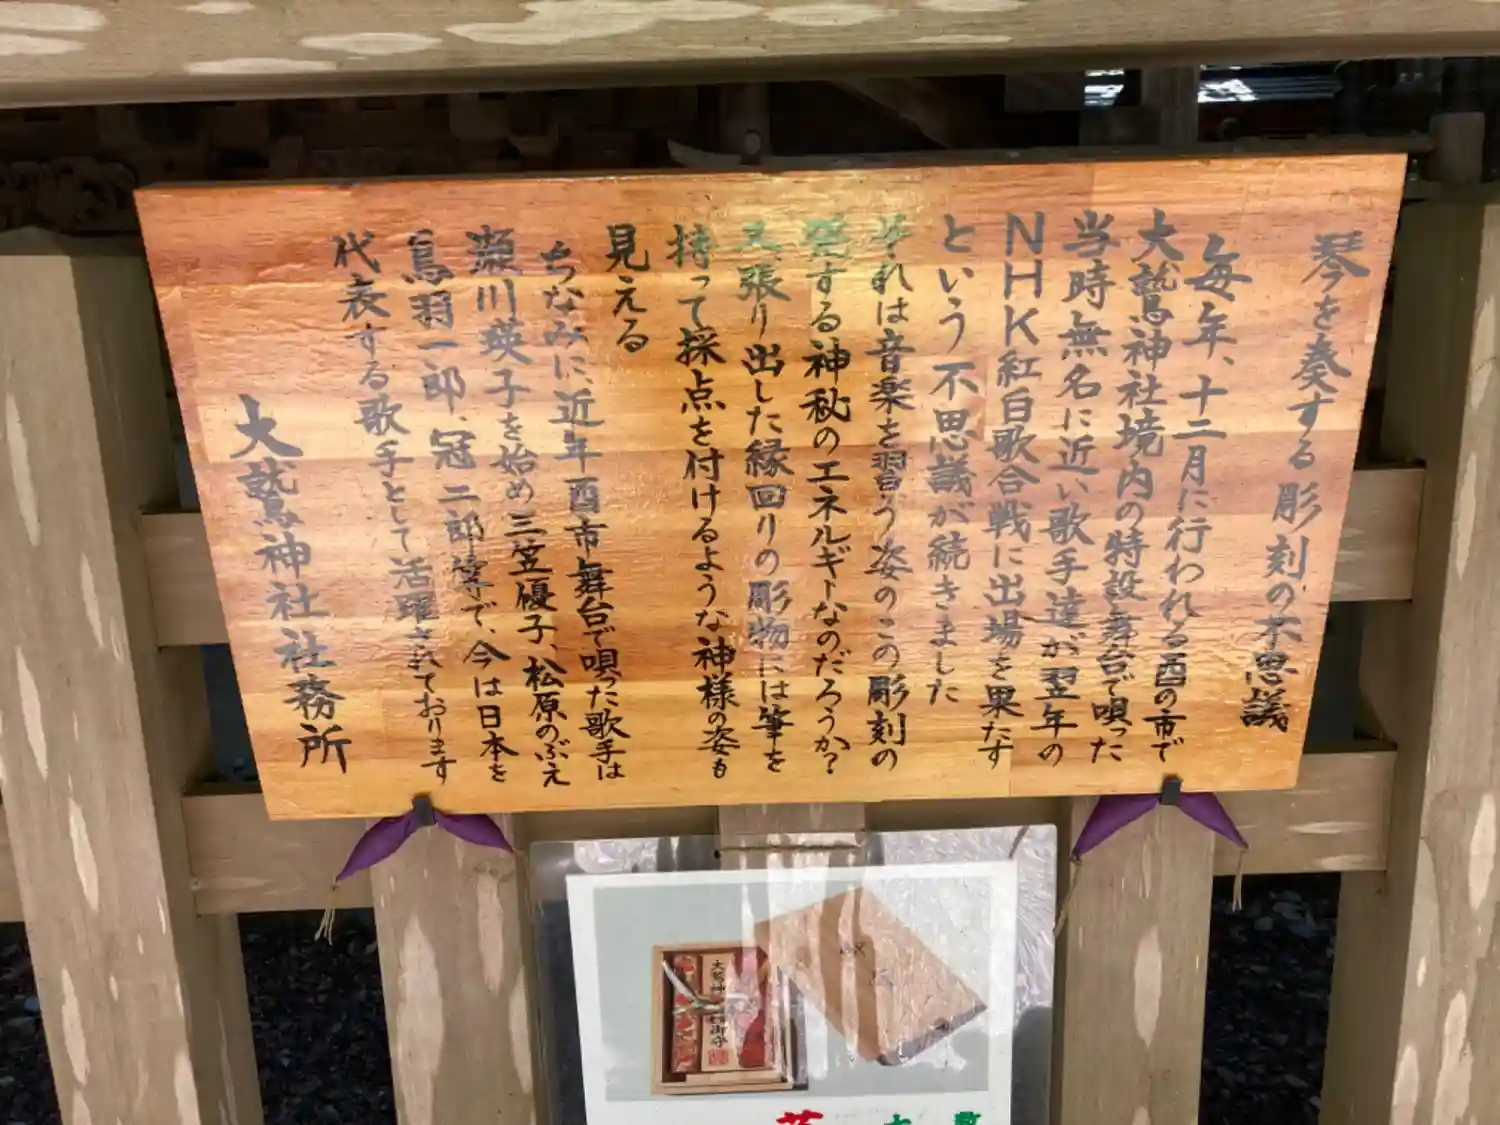 琴を奏する彫刻の不思議
毎年、十二月に行われる酉の市で
大鷲神社境内の特設舞台で唄った
当時無名に近い歌手達が翌年の
NHK紅白歌合戦に出場を果たす
という不思議が続きました
それは音楽を習う姿のこの彫刻の
発する神秘のエネルギーなのだろうか?
又張り出した縁回りの彫物には筆を
持って採点を付けるような神様の姿も
見える
ちなみに、近年酉市舞台で唄った歌手は
瀬川瑛子を始め三笠優子、松原のぶえ
鳥羽一郎、冠二郎等で、今は日本を
代表する歌手として活躍されております
大鷲神社社務所
大鷲神
御守